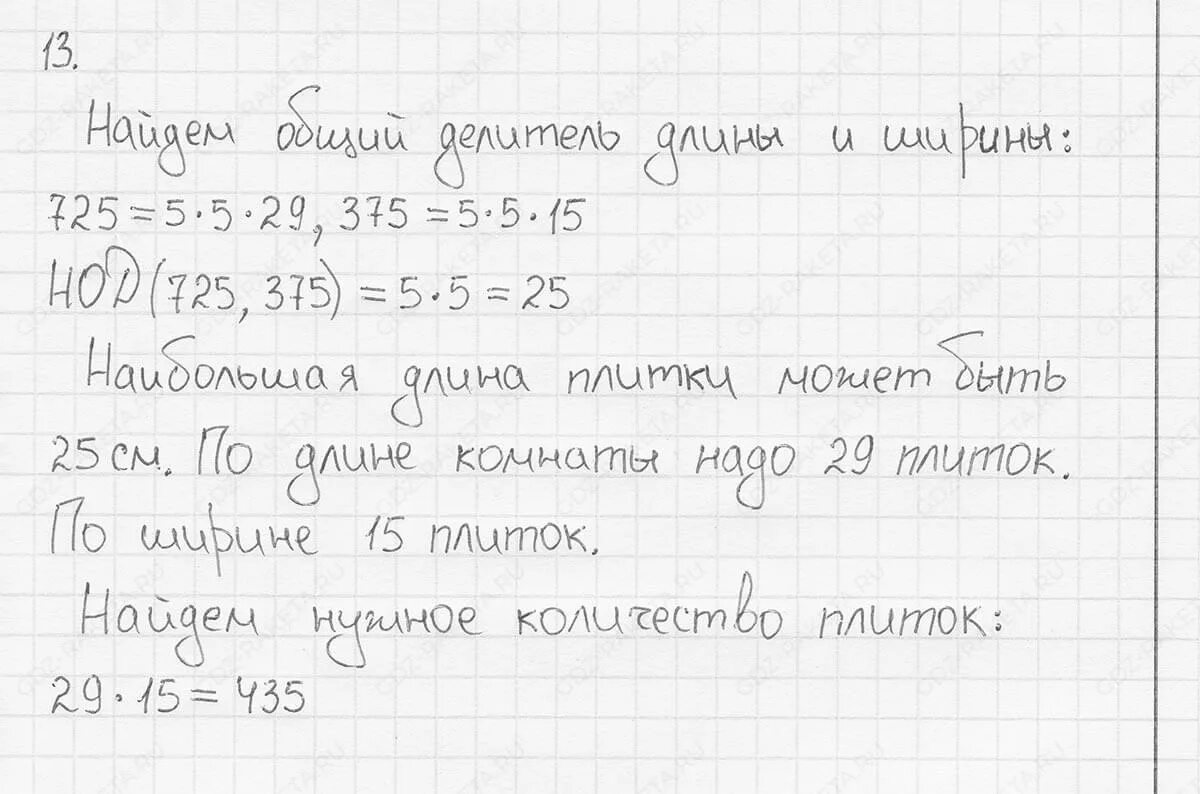 13.
Найдем общий делитель длины и ширины:
725 = 5·5·29, 375 = 5·5·15
НОД(725, 375) = 5·5 = 25
Наибольшая длина плитки может быть
25 см. По длине комнаты надо 29 плиток.
По ширине 15 плиток.
Найдем нужное количество плиток:
29·15 = 435
GDZ-RAKETA.RU